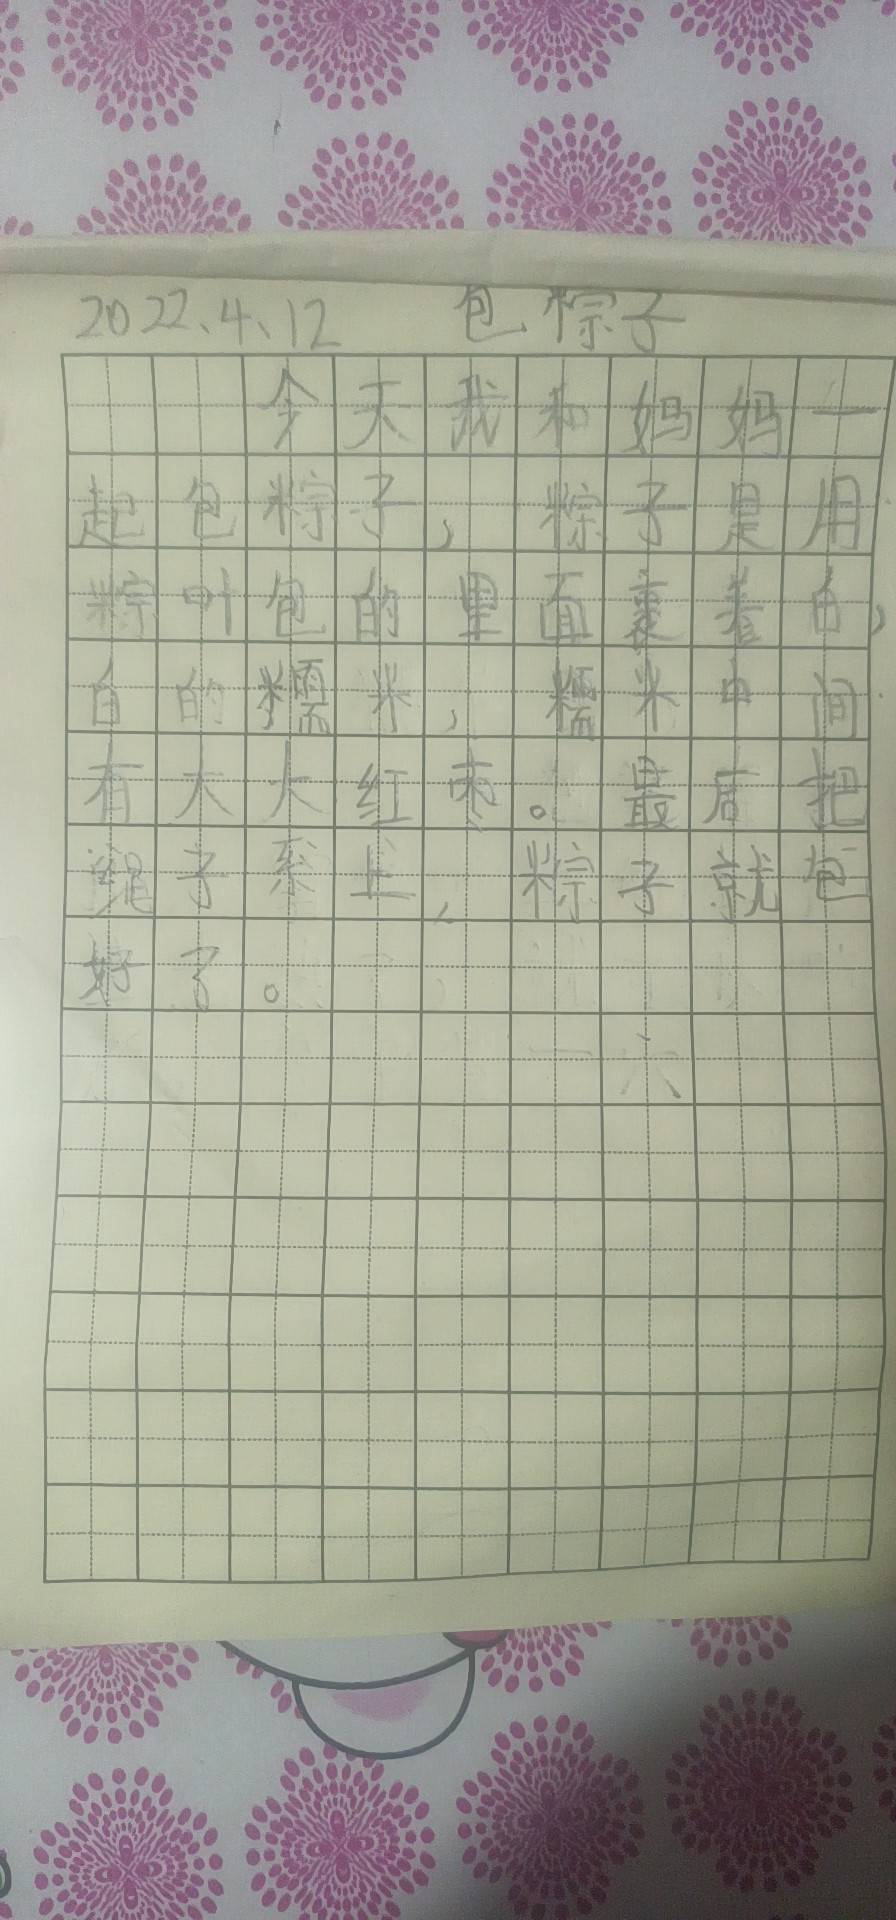 2022、4、12 包粽子
今天我和妈妈一
起包粽子，粽子是用
粽叶包的里面裹着白，
白的糯米，糯米中间
有大大红枣。最后把
绳子系上，粽子就包
好了。
一六